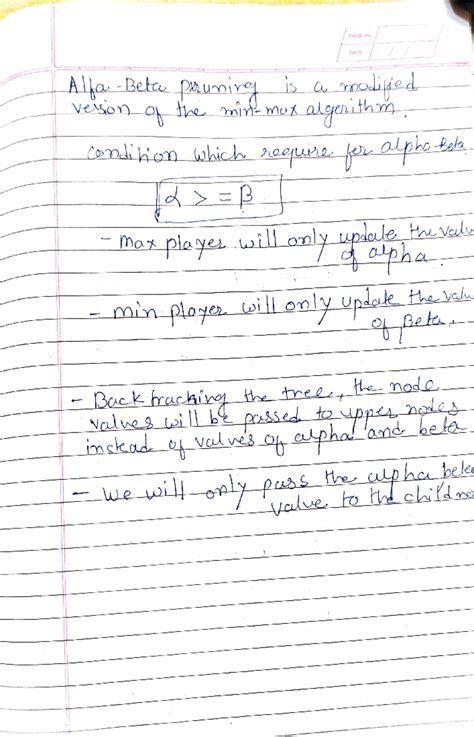 PAGE NO.
DATE
Alfa-Beta pruning is a modified
version of the min-max algorithm.
condition which require for alpha-Beta
α > = β
- max player will only update the value
of alpha.
- min player will only update the valu
of Beta.
- Backtracking the tree, the node
values will be passed to upper nodes
instead of values of alpha and beta
- we will only pass the alpha beta
value to the childnode